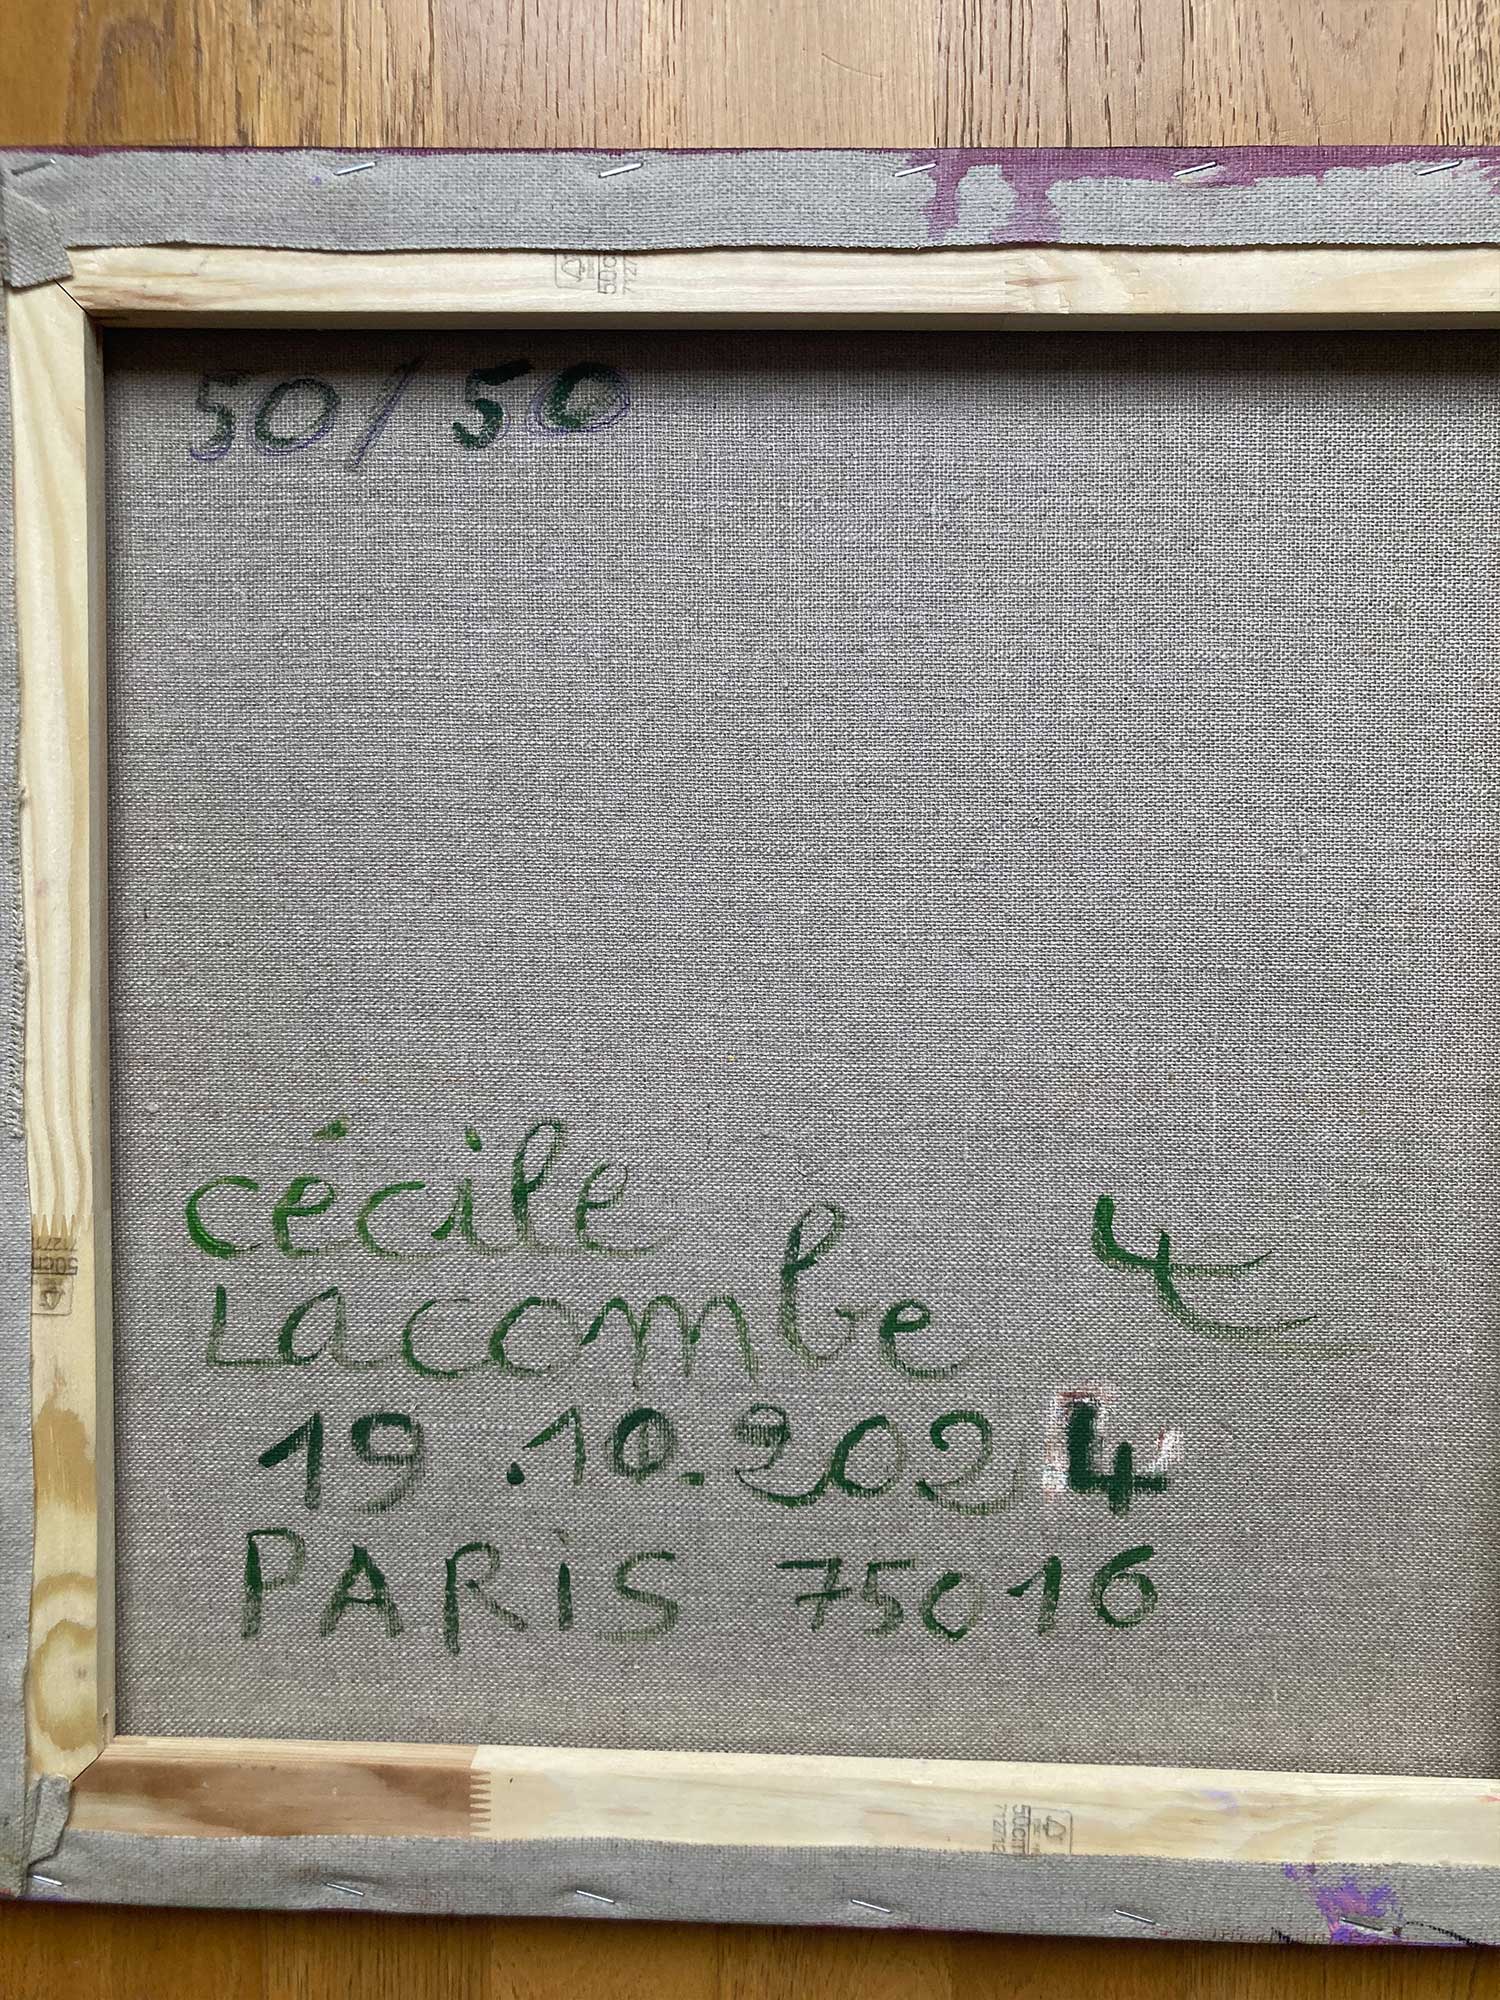 50cm
7127
50/50
cécile
Lacombe
19.10.2024
PARiS 75016
50cm
71271
50cm
71272